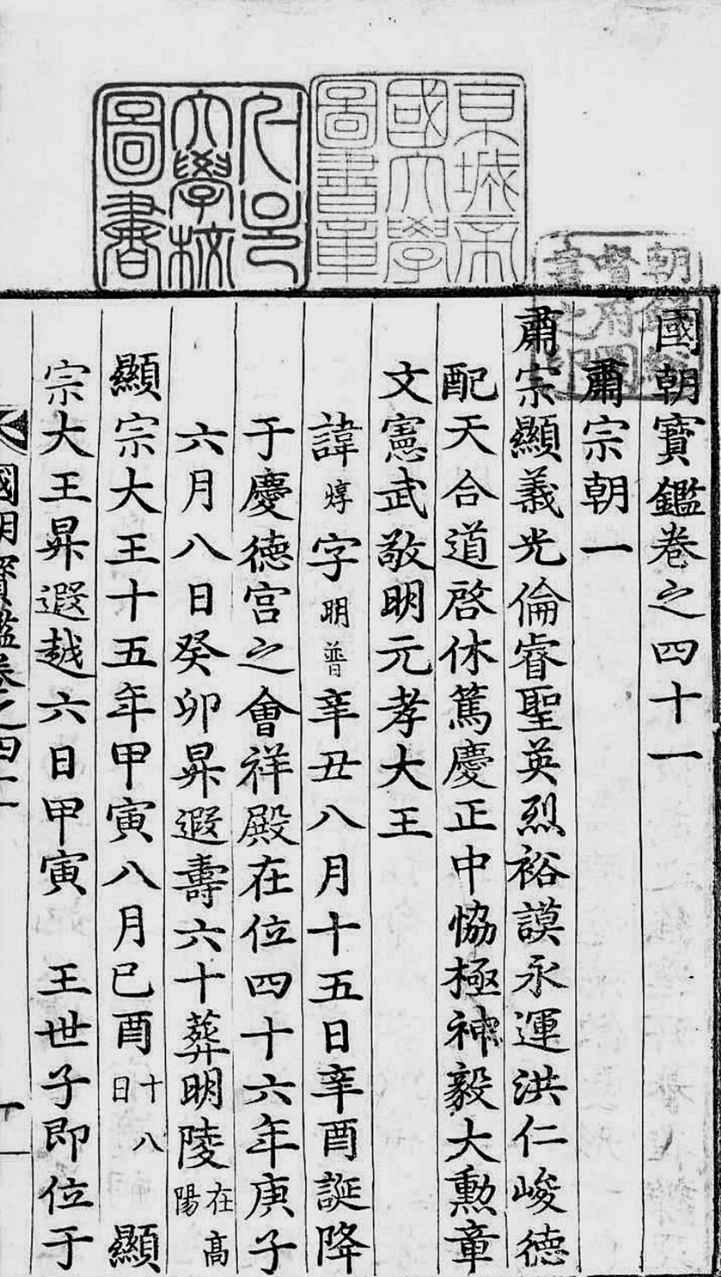 國朝寶鑑卷之四十一
肅宗朝一
肅宗顯義光倫睿聖英烈裕謨永運洪仁峻德
配天合道啓休篤慶正中恊極神毅大勳章
文憲武敬明元孝大王
諱焞字明普辛丑八月十五日辛酉誕降
于慶德宮之會祥殿在位四十六年庚子
六月八日癸卯昇遐壽六十葬明陵在高陽
顯宗大王十五年甲寅八月己酉十八日 顯
宗大王昇遐越六日甲寅 王世子即位于
國朝寶鑑卷之四十一
京城帝國大學圖書章
大學校圖書
朝鮮總督府圖書之印